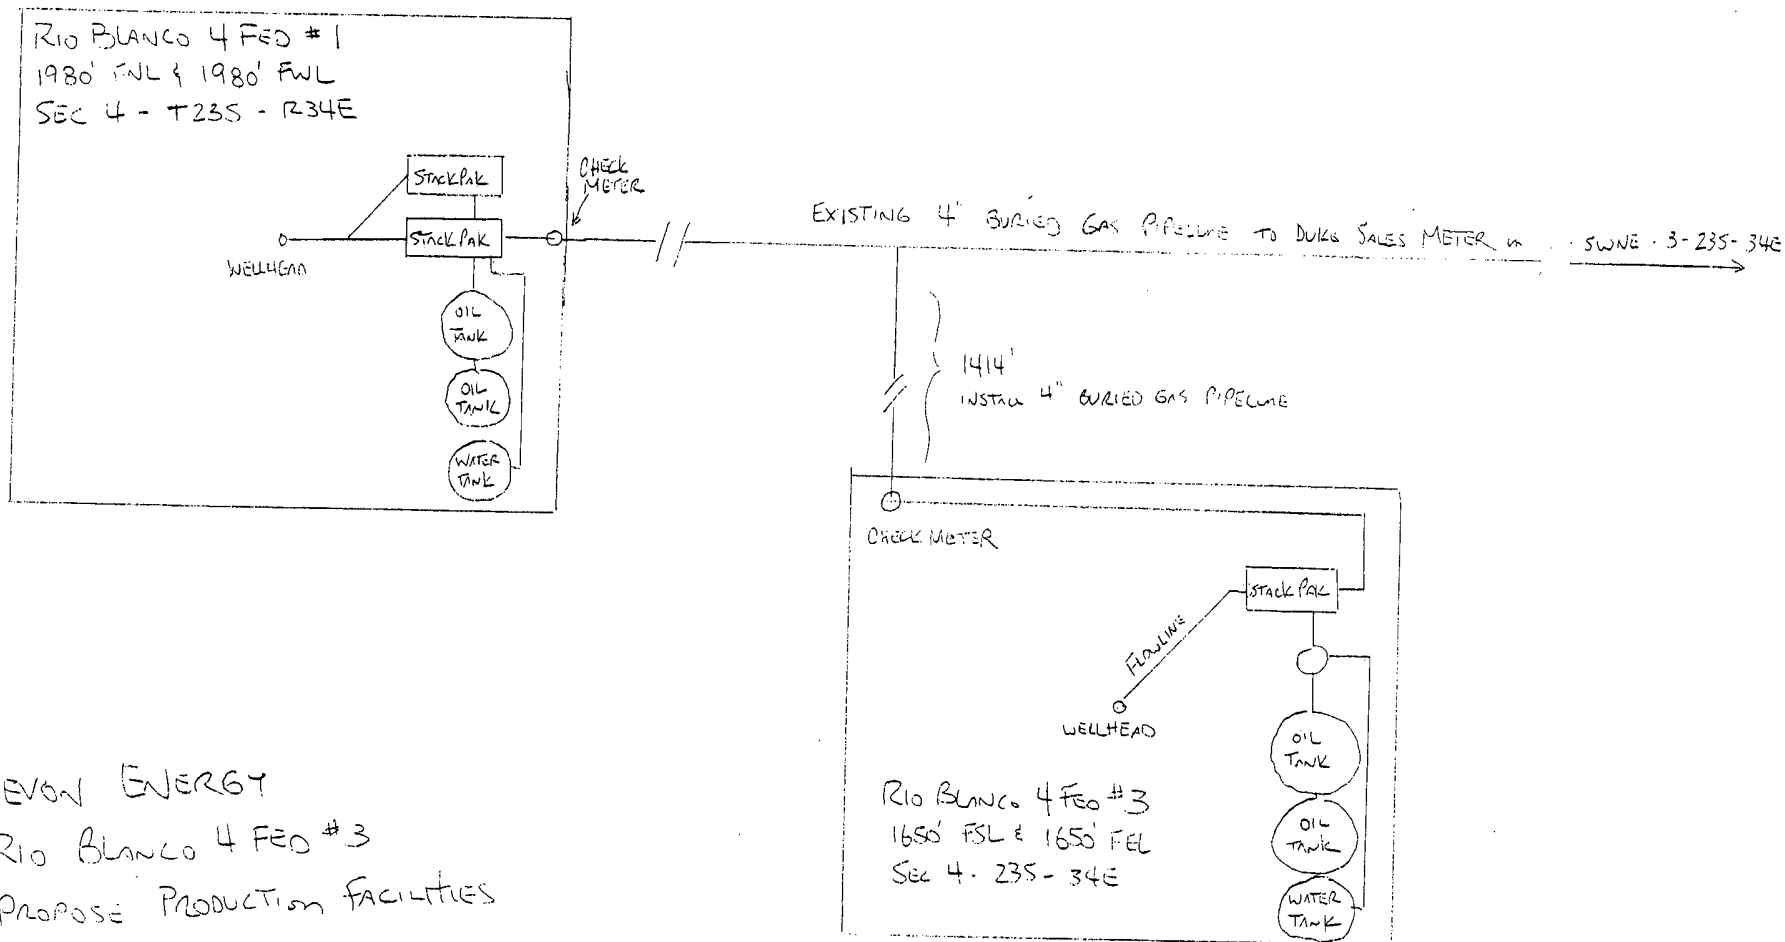 RIO BLANCO 4 FED #1
1980' FNL & 1980' FWL
SEC 4 - T23S - R34E
STACKPAK
CHECK
METER
STACKPAK
WELLHEAD
OIL
TANK
OIL
TANK
WATER
TANK
EXISTING 4" BURIED GAS PIPELINE TO DUKE SALES METER in SWNE . 3-23S-34E
1414'
INSTALL 4" BURIED GAS PIPELINE
CHECK METER
STACK PAK
FLOWLINE
WELLHEAD
OIL
TANK
OIL
TANK
WATER
TANK
RIO BLANCO 4 FED #3
1650' FSL & 1650' FEL
SEC 4 . 23S - 34E
EVON ENERGY
RIO BLANCO 4 FED #3
PROPOSE PRODUCTION FACILITIES